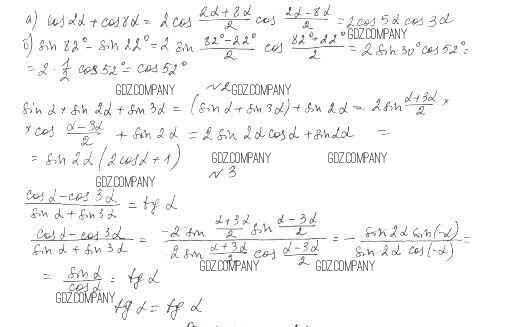 а) cos 2α + cos 8α = 2 cos (2α+8α)/2 cos (2α-8α)/2 = 2 cos 5α cos 3α
GDZ.COMPANY
б) sin 82° - sin 22° = 2 sin (82°-22°)/2 cos (82°+22°)/2 = 2 sin 30° cos 52° =
= 2 · 1/2 cos 52° = cos 52°
GDZ.COMPANY №2 GDZ.COMPANY
sin α + sin 2α + sin 3α = (sin α + sin 3α) + sin 2α = 2 sin (α+3α)/2 ×
× cos (α-3α)/2 + sin 2α = 2 sin 2α cos α + sin 2α =
GDZ.COMPANY GDZ.COMPANY
= sin 2α (2 cos α + 1) GDZ.COMPANY GDZ.COMPANY
GDZ.COMPANY №3
(cos α - cos 3α)/(sin α + sin 3α) = tg α
(cos α - cos 3α)/(sin α + sin 3α) = (-2 sin (α+3α)/2 sin (α-3α)/2)/(2 sin (α+3α)/2 cos (α-3α)/2) = - (sin 2α sin(-α))/(sin 2α cos(-α)) =
GDZ.COMPANY GDZ.COMPANY
= sin α/cos α = tg α
GDZ.COMPANY
tg α = tg α